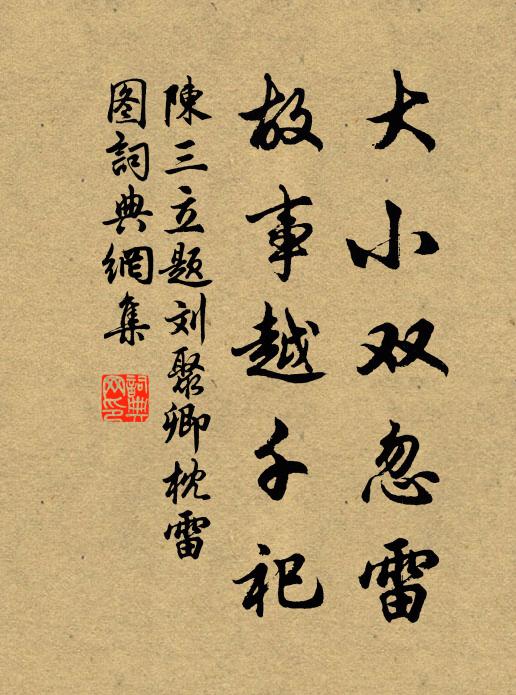 大小双忽雷
故事越千祀
陳三立题刘聚卿枕雷
图詞典網集
詞典網印